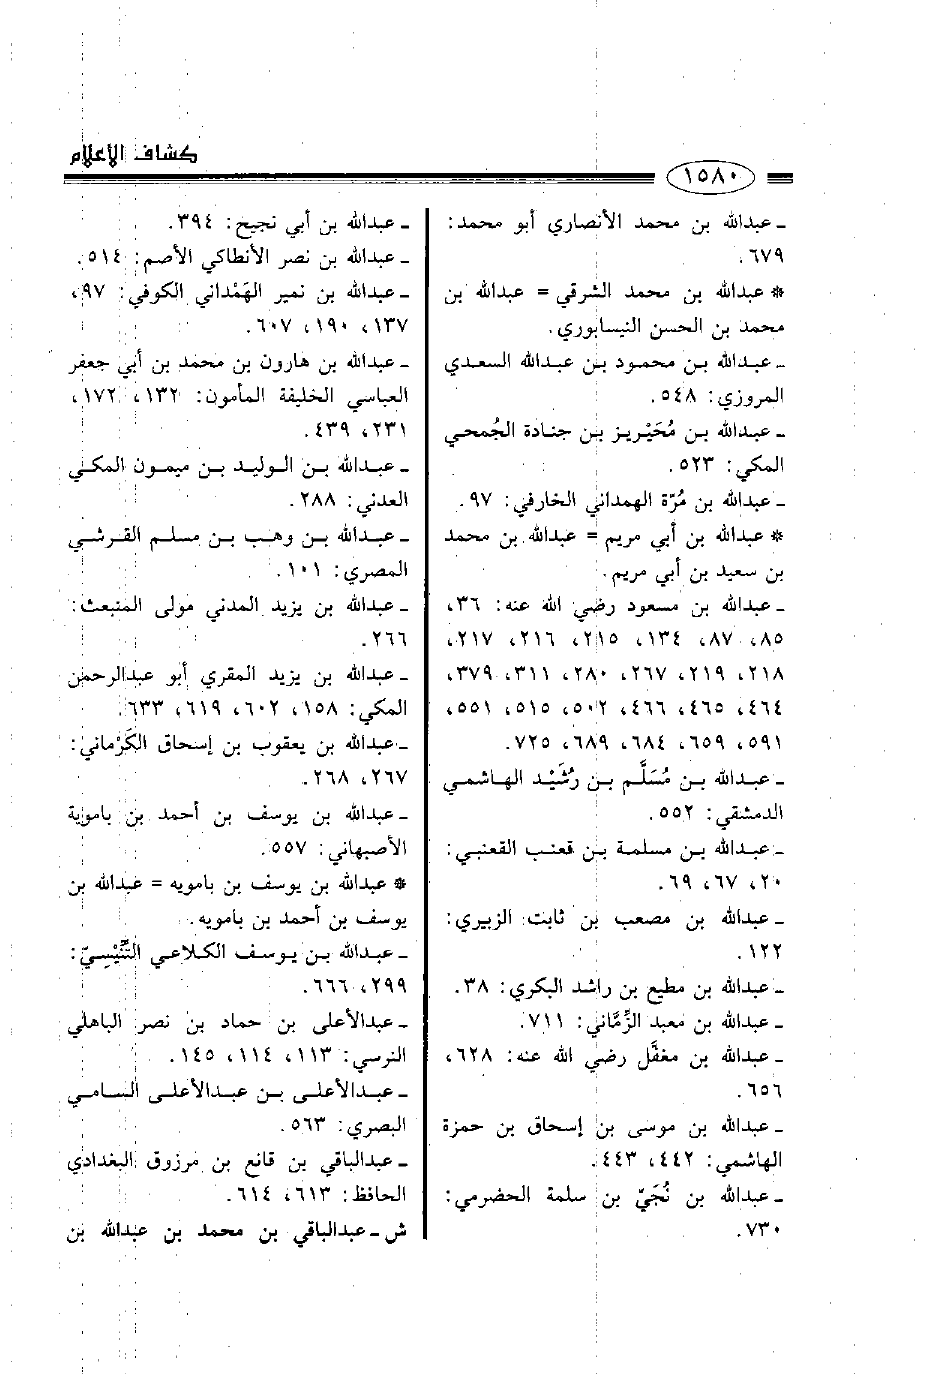 كشاف الأعلام
١٥٨٠
ـ عبدالله بن محمد الأنصاري أبو محمد:
٦٧٩.
* عبدالله بن محمد الشرقي = عبدالله بن
محمد بن الحسن النيسابوري.
ـ عبدالله بن محمود بن عبدالله السعدي
المروزي: ٥٤٨.
ـ عبدالله بن مُحَيْريز بن جنادة الجُمحي
المكي: ٥٢٣.
ـ عبدالله بن مُرّة الهمداني الخارفي: ٩٧.
* عبدالله بن أبي مريم = عبدالله بن محمد
بن سعيد بن أبي مريم.
ـ عبدالله بن مسعود رضي الله عنه: ٣٦،
٨٥، ٨٧، ١٣٤، ٢١٥، ٢١٦، ٢١٧،
٢١٨، ٢١٩، ٢٦٧، ٢٨٠، ٣١١، ٣٧٩،
٤٦٤، ٤٦٥، ٤٦٦، ٥٠٢، ٥١٥، ٥٥١،
٥٩١، ٦٥٩، ٦٨٤، ٦٨٩، ٧٢٥.
ـ عبدالله بن مُسَلَّم بن رُشَيْد الهاشمي
الدمشقي: ٥٥٢.
ـ عبدالله بن مسلمة بن قعنب القعنبي:
٢٠، ٦٧، ٦٩.
ـ عبدالله بن مصعب بن ثابت الزبيري:
١٢٢.
ـ عبدالله بن مطيع بن راشد البكري: ٣٨.
ـ عبدالله بن معبد الزِّمَّاني: ٧١١.
ـ عبدالله بن مغفَّل رضي الله عنه: ٦٢٨،
٦٥٦.
ـ عبدالله بن موسى بن إسحاق بن حمزة
الهاشمي: ٤٤٢، ٤٤٣.
ـ عبدالله بن نُجَيّ بن سلمة الحضرمي:
٧٣٠.
ـ عبدالله بن أبي نجيح: ٣٩٤.
ـ عبدالله بن نصر الأنطاكي الأصم: ٥١٤.
ـ عبدالله بن نمير الهَمْداني الكوفي: ٩٧،
١٣٧، ١٩٠، ٦٠٧.
ـ عبدالله بن هارون بن محمد بن أبي جعفر
العباسي الخليفة المأمون: ١٣٢، ١٧٢،
٢٣١، ٤٣٩.
ـ عبدالله بن الوليد بن ميمون المكي
العدني: ٢٨٨.
ـ عبدالله بن وهب بن مسلم القرشي
المصري: ١٠١.
ـ عبدالله بن يزيد المدني مولى المنبعث:
٢٦٦.
ـ عبدالله بن يزيد المقري أبو عبدالرحمن
المكي: ١٥٨، ٦٠٢، ٦١٩، ٦٣٣.
ـ عبدالله بن يعقوب بن إسحاق الكَرْماني:
٢٦٧، ٢٦٨.
ـ عبدالله بن يوسف بن أحمد بن بامويه
الأصبهاني: ٥٥٧.
* عبدالله بن يوسف بن بامويه = عبدالله بن
يوسف بن أحمد بن بامويه.
ـ عبدالله بن يوسف الكلاعي التِّنِّيْسِيّ:
٢٩٩، ٦٦٦.
ـ عبدالأعلى بن حماد بن نصر الباهلي
النرسي: ١١٣، ١١٤، ١٤٥.
ـ عبدالأعلى بن عبدالأعلى السامي
البصري: ٥٦٣.
ـ عبدالباقي بن قانع بن مرزوق البغدادي
الحافظ: ٦١٣، ٦١٤.
ش ـ عبدالباقي بن محمد بن عبدالله بن